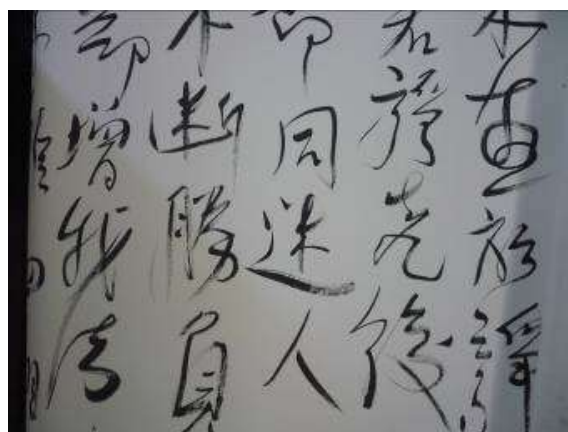 不在於諍
若諍先後
即同迷人
不断勝負
却增我法